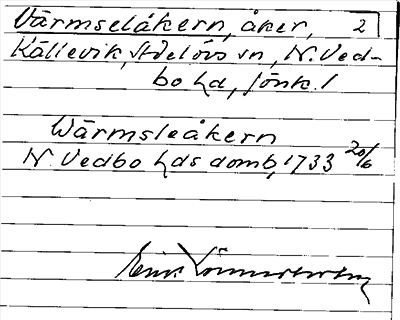 Värmseleåkern, åker, 2
Källevik, Adelövs sn, N. Ved-
bo hd, Jönk. l
Wärmsleåkern
N. Vedbo hds domb, 1733 20/6
Erik